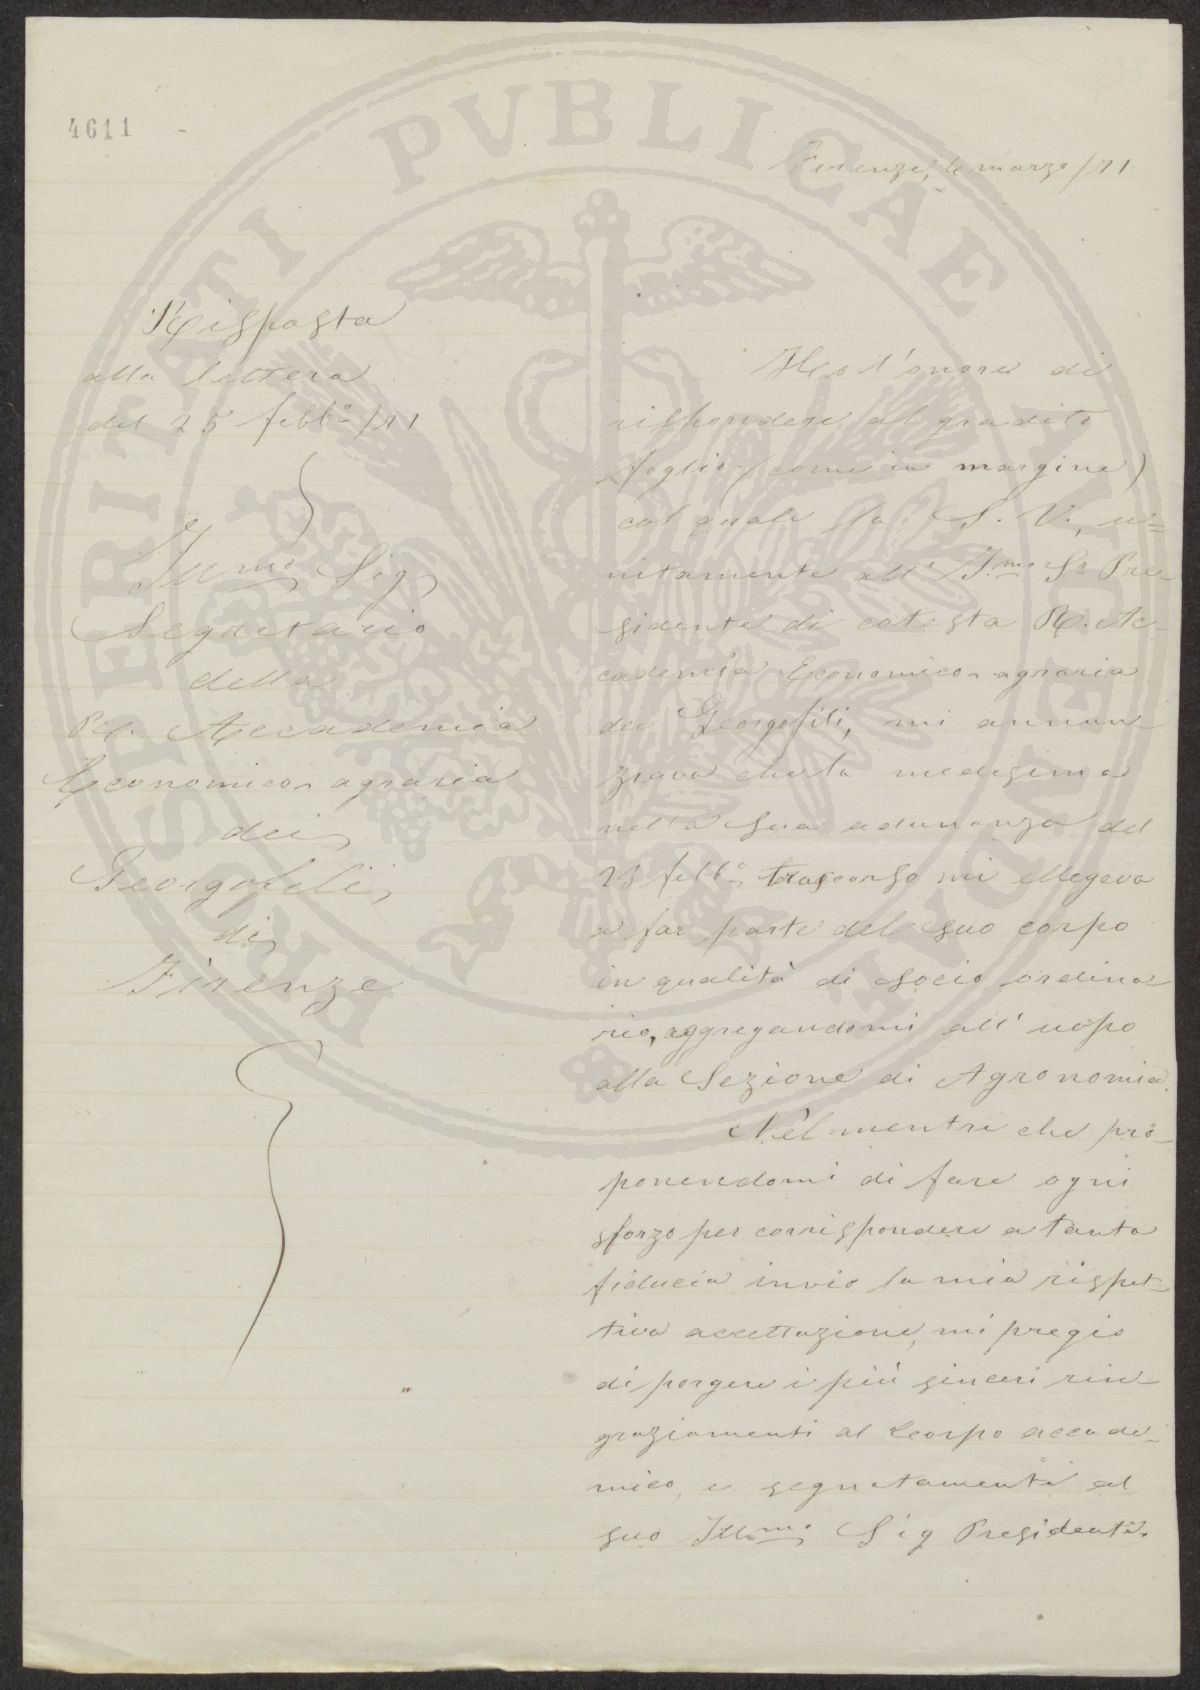 4611
PROSPERITATI PVBLICAE AVGENDAE
Firenze, 6 marzo/71
Risposta
alla lettera
del 25 febb.º/71
Ill.mo Sig.
Segretario
della
R. Accademia
Economico-agraria
dei
Georgofili
di
Firenze
Ho l'onore di
rispondere al gradito
foglio (come in margine)
col quale la S. V., u=
nitamente all' I.mo Sr Pre-
sidente di cotesta R. Ac-
cademia Economico-agraria
dei Georgofili, mi annun-
ziava che la medesima
nella sua adunanza del
febb.º trascorso mi elegeva
a far parte del suo corpo
in qualità di socio ordina
rio, aggregandomi all' uopo
alla Sezione di Agronomia.
Nel mentre che pro-
ponendomi di fare ogni
sforzo per corrispondere a tanta
fiducia invio la mia rispet-
tiva accettazione, mi pregio
di porgere i più sinceri rin-
graziamenti al Corpo accade-
mico, e segnatamente al
suo Ill.mo Sig Presidente.